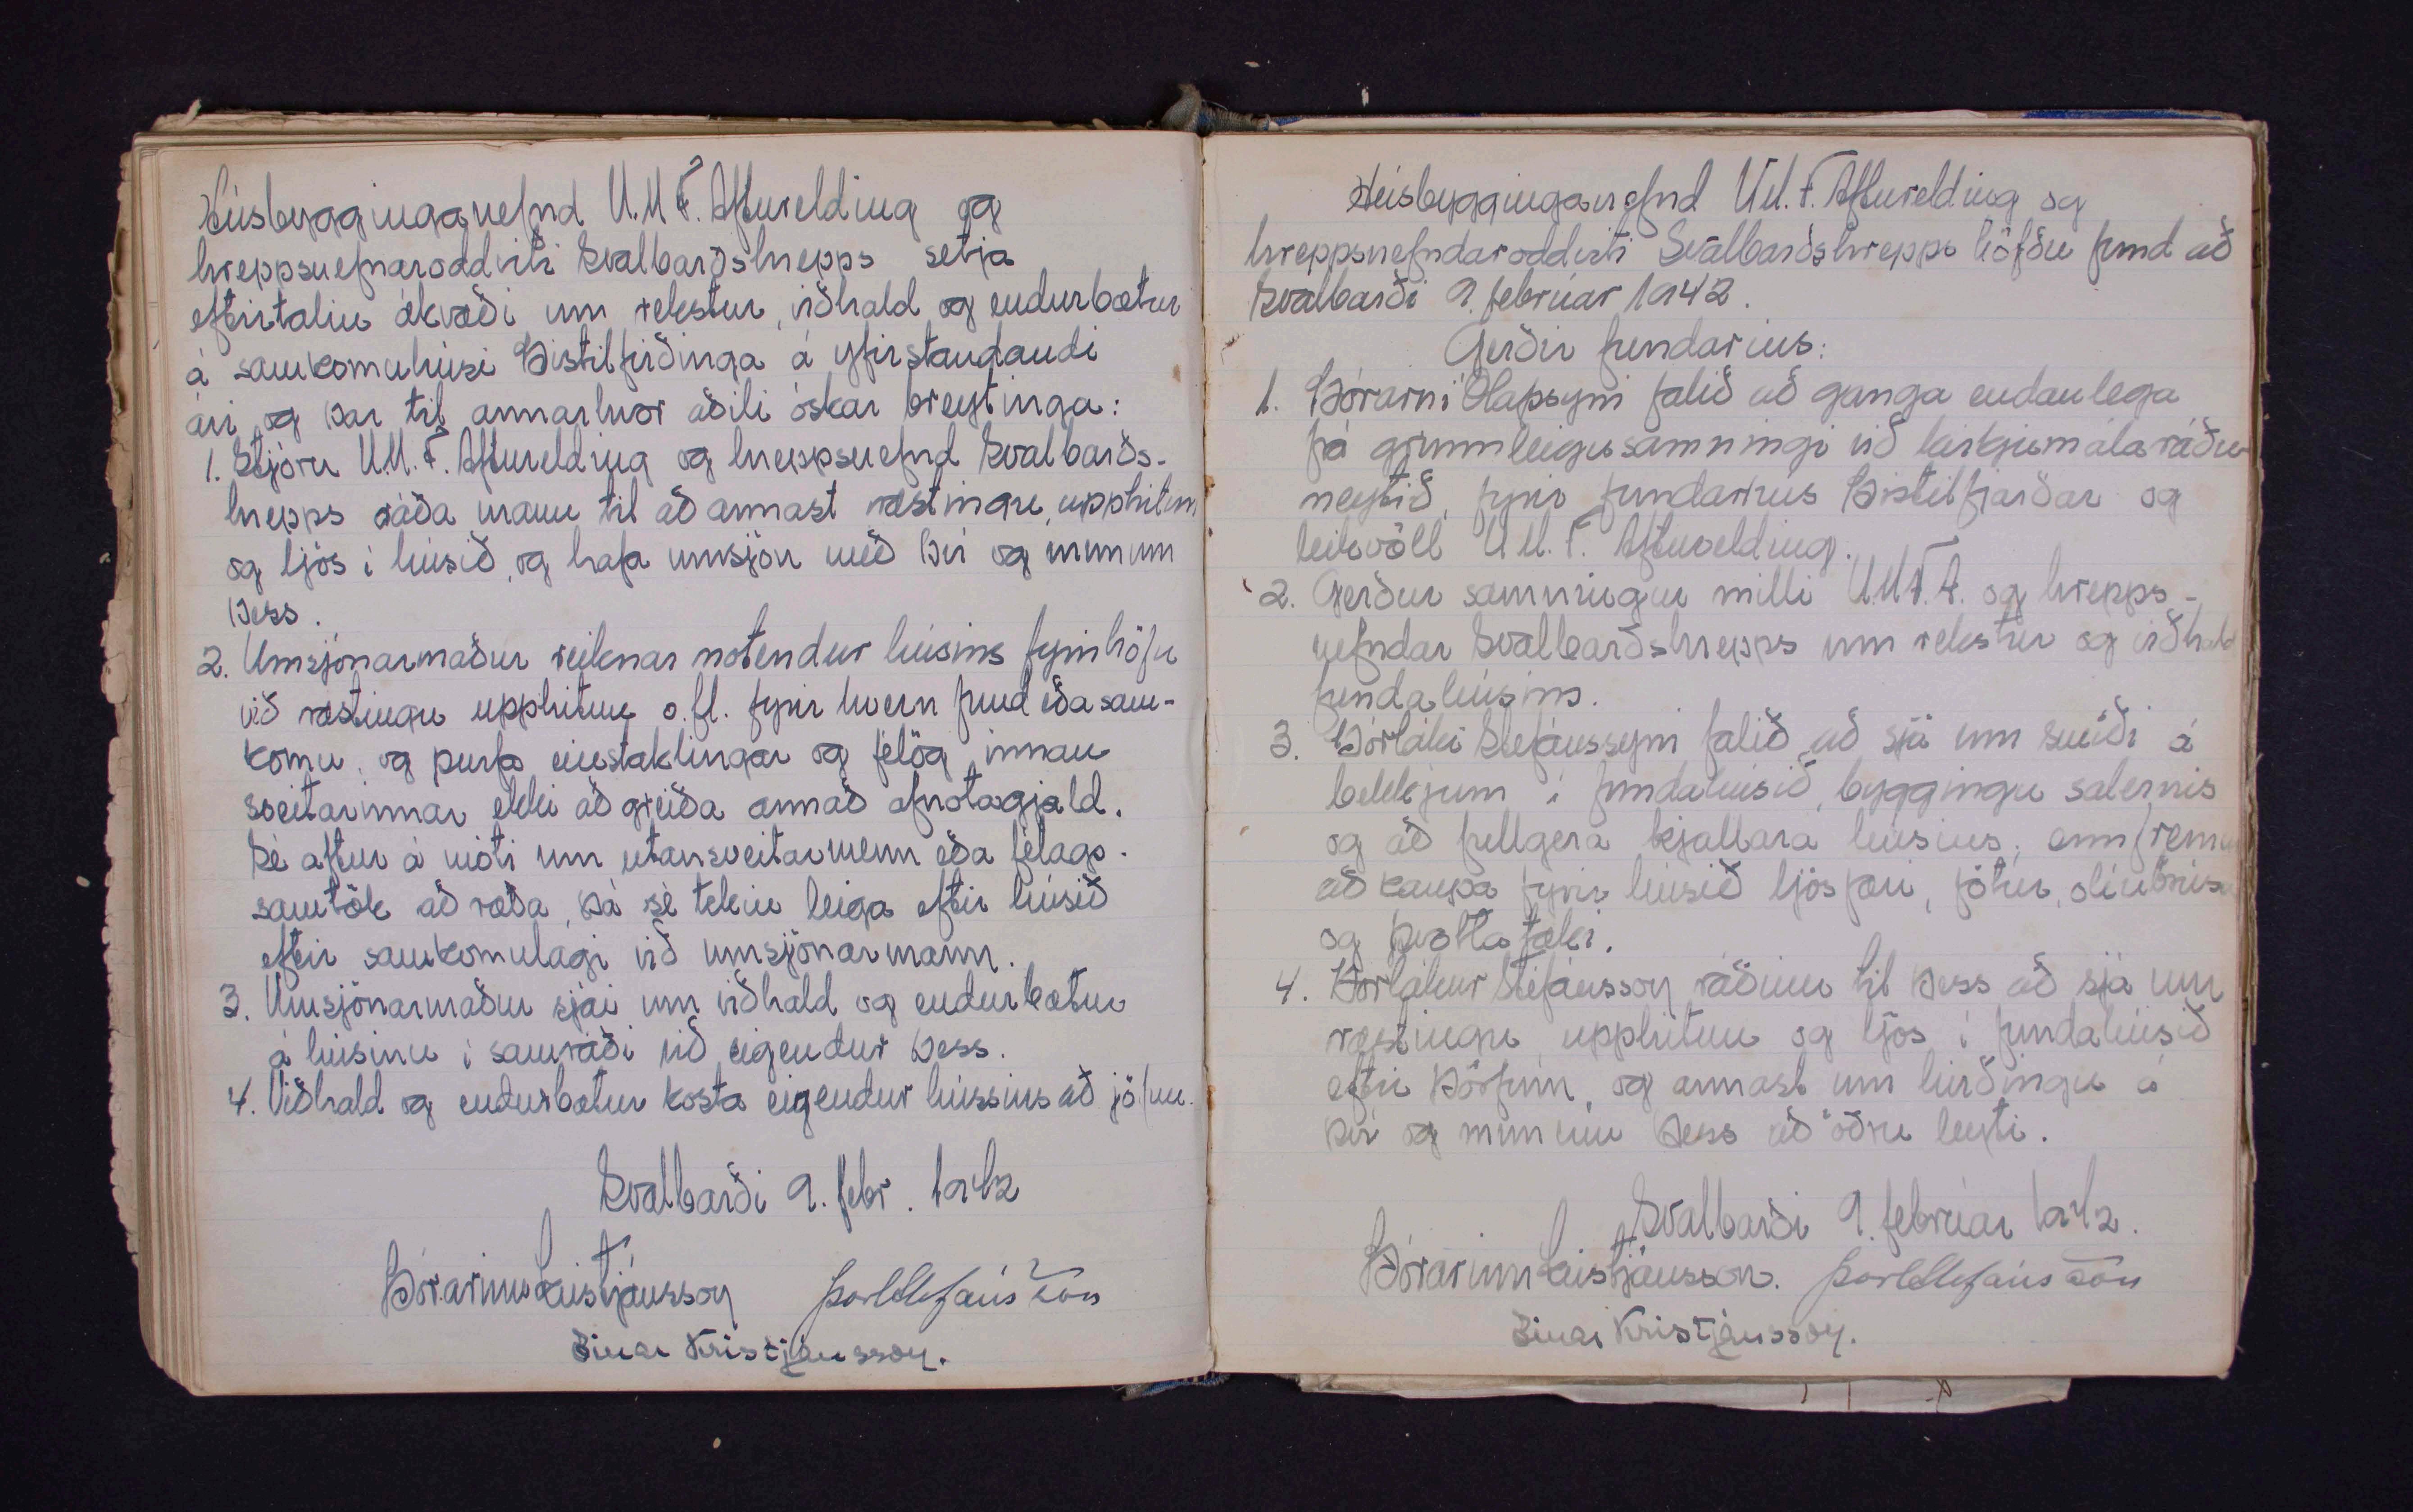 Húsbygginganefnd U.M.F. Afturelding og
hreppsnefnaroddviti Svalbarðshrepps setja
eftirtalin ákvæði um rekstur, viðhald og endurbætur
á samkomuhúsi Þistilfirðinga á yfirstandandi
ári og þar til annarhvor aðili óskar breytinga:
1. Stjórn U.M.F. Afturelding og hreppsnefnd Svalbarðs-
hrepps ráða mann til að annast ræstingu, upphitun
og ljós í húsið, og hafa umsjón með því og munum
þess.
2. Umsjónarmaður reiknar notendur húsins fyrirhöfn
við ræstingu upphitun o.fl. fyrir hvern fund eða sam-
komu, og þurfa einstaklingar og félög innan
sveitarinnar ekki að greiða annað afnotagjald.
Sé aftur á móti um utansveitarmenn eða félags-
samtök að ræða, þá sé tekin leiga eftir húsið
eftir samkomulagi við umsjónarmann.
3. Umsjónarmaður sjái um viðhald og endurbætur
á húsinu í samráði við eigendur þess.
4. Viðhald og endurbætur kosta eigendur hússins að jöfnu.
Svalbarði 9. febr. 1942
Þórarinn Kristjánsson Þorl Stefánsson
Einar Kristjánsson.
Húsbygginganefnd U.M.F. Afturelding og
hreppsnefndaroddviti Svalbarðshrepps höfðu fund að
Svalbarði 9. febrúar 1942.
Gerðir fundarins:
1. Þórarni Ólafssyni falið að ganga endanlega
frá grunnleigusamningi við kirkjumálaráðu-
neytið, fyrir fundarhús Þistilfjarðar og
leikvöll U.M.F. Afturelding.
2. Gerður samningur milli U.M.F.A. og hrepps-
nefndar Svalbarðshrepps um rekstur og viðhald
fundahúsins.
3. Þorláki Stefánssyni falið að sjá um smíði á
bekkjum í fundahúsið, byggingu salernis
og að fullgera kjallara húsins, ennfremur
að kaupa fyrir húsið ljósfæri, fötur, olíubrúsa
og þvottatæki.
4. Þorlákur Stefánsson ráðinn til þess að sjá um
ræstingu, upphitun og ljós í fundahúsið
eftir þörfum, og annast um hirðingu á
því og munum þess að öðru leyti.
Svalbarði 9. febrúar 1942.
Þórarinn Kristjánsson. Þorl Stefánsson
Einar Kristjánsson.